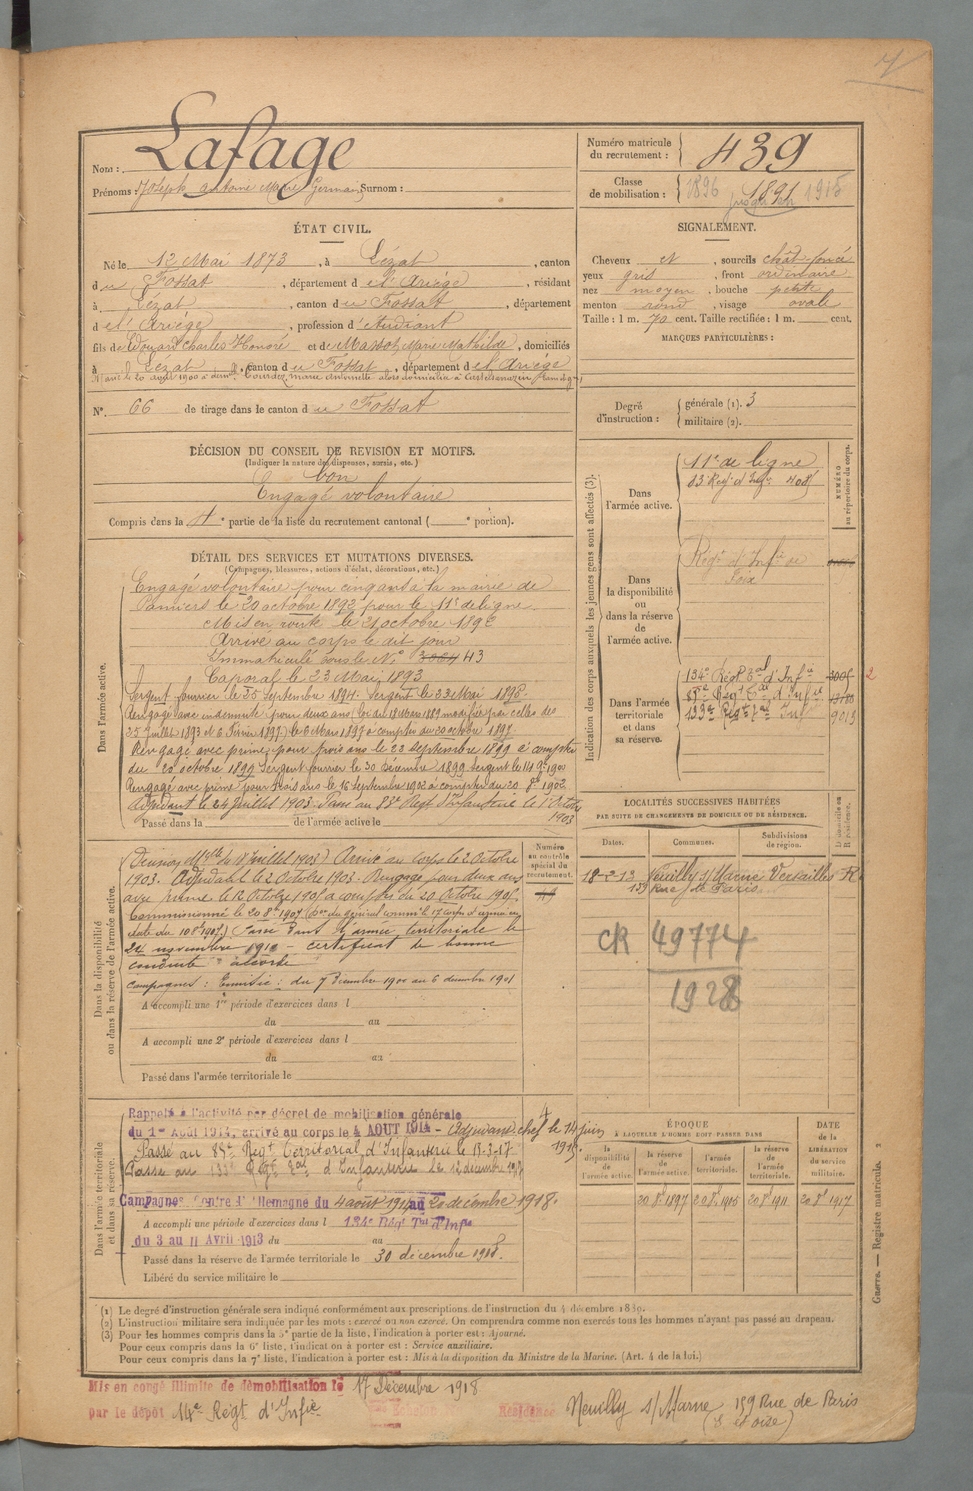 Nom : Lafage
Prénoms : Joseph Antoine Marie Germain Surnom :
Numéro matricule du recrutement : 439
Classe de mobilisation : 1896 1891 1915
ÉTAT CIVIL.
Né le 12 Mai 1873, à Lézat, canton
du Fossat, département de l'Ariège, résidant
à Lézat, canton du Fossat, département
de l'Ariège, profession d'étudiant
fils de Edouard Charles Honoré et de Massot Marie Mathilde, domiciliés
à Lézat, canton du Fossat, département de l'Ariège
Marié le 20 août 1900 à Marie Antoinette domiciliée à Castelsarrazin
N° 66 de tirage dans le canton du Fossat
SIGNALEMENT.
Cheveux et, sourcils chât. foncé
yeux gris, front ordinaire
nez moyen, bouche petite
menton rond, visage ovale
Taille : 1 m. 70 cent. Taille rectifiée : 1 m. cent.
MARQUES PARTICULIÈRES :
Degré d'instruction : générale (1). 3
militaire (2).
DÉCISION DU CONSEIL DE REVISION ET MOTIFS.
(Indiquer la nature des dispenses, sursis, etc.)
bon
Engagé volontaire
Compris dans la 4e partie de la liste du recrutement cantonal ( e portion).
DÉTAIL DES SERVICES ET MUTATIONS DIVERSES.
(Campagnes, blessures, actions d'éclat, décorations, etc.)
Dans l'armée active.
Engagé volontaire pour cinq ans à la mairie de
Pamiers le 20 octobre 1892 pour le 11e de ligne
Mis en route le 21 octobre 1892
Arrivé au corps le dit jour
Immatriculé sous le N° 43
Caporal le 23 Mai 1893
Sergent fourrier le 30 Septembre 1894. Sergent le 23 Mai 1896.
Rengagé avec indemnité pour deux ans (loi du 18 Mars 1889 modifiée par celles des
25 Juillet 1893 et 6 Février 1897) le 6 Mars 1897 à compter du 20 octobre 1897
Rengagé avec prime pour trois ans le 23 septembre 1899 à compter
du 20 octobre 1899 Sergent fourrier le 30 décembre 1899 Sergent le
Rengagé avec prime pour trois ans le 16 septembre 1902 à compter du 20 8bre 1902
Adjudant le 24 Juillet 1903. Passé au 83e Régt d'Infanterie le 1er Octobre
1903
Passé dans la de l'armée active le
Dans la disponibilité ou dans la réserve de l'armée active.
Numéro au contrôle spécial du recrutement.
(Décision Mlle du 11 Juillet 1903) Arrivé au corps le 2 Octobre
1903. Adjudant le 2 Octobre 1903. Rengagé pour deux ans
avec prime le 12 Octobre 1905 à compter du 20 Octobre 1905.
Commissionné le 20 8bre 1907 (Don du général commt le 17e corps d'armée en
date du 10 8bre 1907.) Passé dans l'armée territoriale le
24 novembre 1910 - certificat de bonne
conduite "accordé"
Campagnes : Tunisie : du 7 Décembre 1900 au 6 décembre 1901
A accompli une 1re période d'exercices dans l
du au
A accompli une 2e période d'exercices dans l
du au
Passé dans l'armée territoriale le
Dans l'armée territoriale et dans sa réserve.
Rappelé à l'activité par décret de mobilisation générale
du 1er Août 1914, arrivé au corps le 4 AOUT 1914 - Adjudant chef le 14 juin
1915.
Passé au 85e Régt Territorial d'Infanterie le 13-3-17
Passé au 133e Régt Tal d'Infanterie le 12 décembre 1917
Campagnes Contre l'Allemagne du 4 août 1914 au 20 décembre 1918.
A accompli une période d'exercices dans l 134e Régt Tal d'Infie
du 3 au 11 Avril 1913 du au
Passé dans la réserve de l'armée territoriale le 30 décembre 1918.
Libéré du service militaire le
Indication des corps auxquels les jeunes gens sont affectés (3).
NUMÉRO au répertoire du corps.
Dans l'armée active. 11e de ligne
83 Régt d'Infie 408
Dans la disponibilité ou dans la réserve de l'armée active. Régt d'Infie de
Foix
Dans l'armée territoriale et dans sa réserve. 134e Régt Tal d'Infie
85e Régt Tal d'Infie
133e Régt Tal Inf 9013
2
LOCALITÉS SUCCESSIVES HABITÉES
PAR SUITE DE CHANGEMENTS DE DOMICILE OU DE RÉSIDENCE.
Dates. Communes. Subdivisions de région. Domicile ou Résidence.
18-2-13 Neuilly s/Marne Versailles R
159 Rue de Paris
CR 49774
1928
ÉPOQUE
À LAQUELLE L'HOMME DOIT PASSER DANS
DATE de la LIBÉRATION du service militaire.
la disponibilité de l'armée active. la réserve de l'armée active. l'armée territoriale. la réserve de l'armée territoriale.
20 8bre 1897 20 8bre 1905 20 8bre 1911 20 8bre 1917
(1) Le degré d'instruction générale sera indiqué conformément aux prescriptions de l'instruction du 4 décembre 1889.
(2) L'instruction militaire sera indiquée par les mots : exercé ou non exercé. On comprendra comme non exercés tous les hommes n'ayant pas passé au drapeau.
(3) Pour les hommes compris dans la 5e partie de la liste, l'indication à porter est : Ajourné.
Pour ceux compris dans la 6e liste, l'indication à porter est : Service auxiliaire.
Pour ceux compris dans la 7e liste, l'indication à porter est : Mis à la disposition du Ministre de la Marine. (Art. 4 de la loi.)
Guerre. — Registre matricule. 2
Mis en congé illimité de démobilisation le 17 Décembre 1918
par le dépôt 14e Régt d'Infie Echelon Résidence Neuilly s/Marne 159 Rue de Paris
(S et Oise)